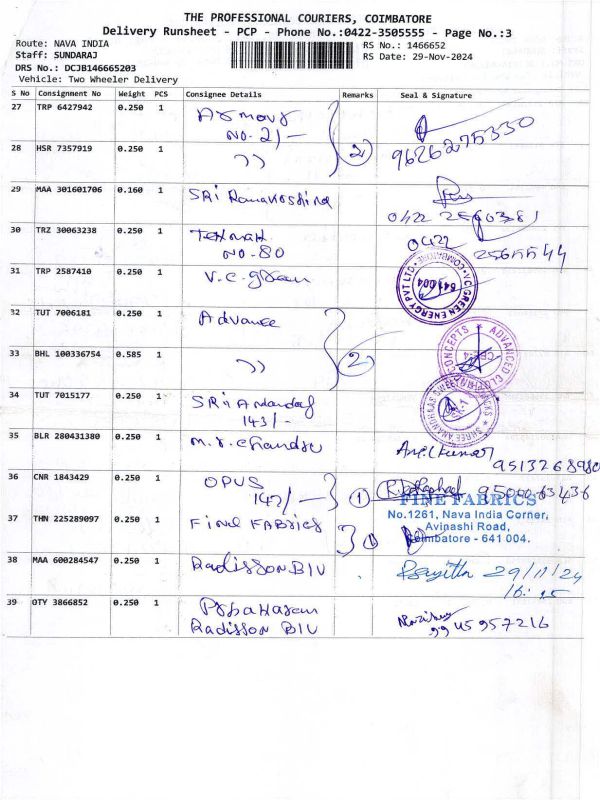 THE PROFESSIONAL COURIERS, COIMBATORE
Delivery Runsheet - PCP - Phone No.:0422-3505555 - Page No.:3
Route: NAVA INDIA
RS No.: 1466652
Staff: SUNDARAJ
RS Date: 29-Nov-2024
DRS No.: DCJB146665203
Vehicle: Two Wheeler Delivery
S No Consignment No Weight PCS Consignee Details Remarks Seal & Signature
27 TRP 6427942 0.250 1
No. 21/-
9626275330
28 HSR 7357919 0.250 1 " 2
29 MAA 301601706 0.160 1 SRi
0422
30 TRZ 30063238 0.250 1
No. 80
0422 2565544
31 TRP 2587410 0.250 1 V.C. green
VC GREEN ENERGY PVT LTD COIMBATORE 641 004
32 TUT 7006181 0.250 1 Advance
33 BHL 100336754 0.585 1 " 2
ADVANCED CONCEPTS
34 TUT 7015177 0.250 1 SRi
143/-
35 BLR 280431380 0.250 1
Anil kumar
36 CNR 1843429 0.250 1 OPUS
142/- 1
37 THN 225289097 0.250 1 Fine FABRics 1
FINE FABRICS
No.1261, Nava India Corner,
Avinashi Road,
Coimbatore - 641 004.
38 MAA 600284547 0.250 1 Radisson BLU
29/11/24
39 OTY 3866852 0.250 1
Radisson BLU
9945957216